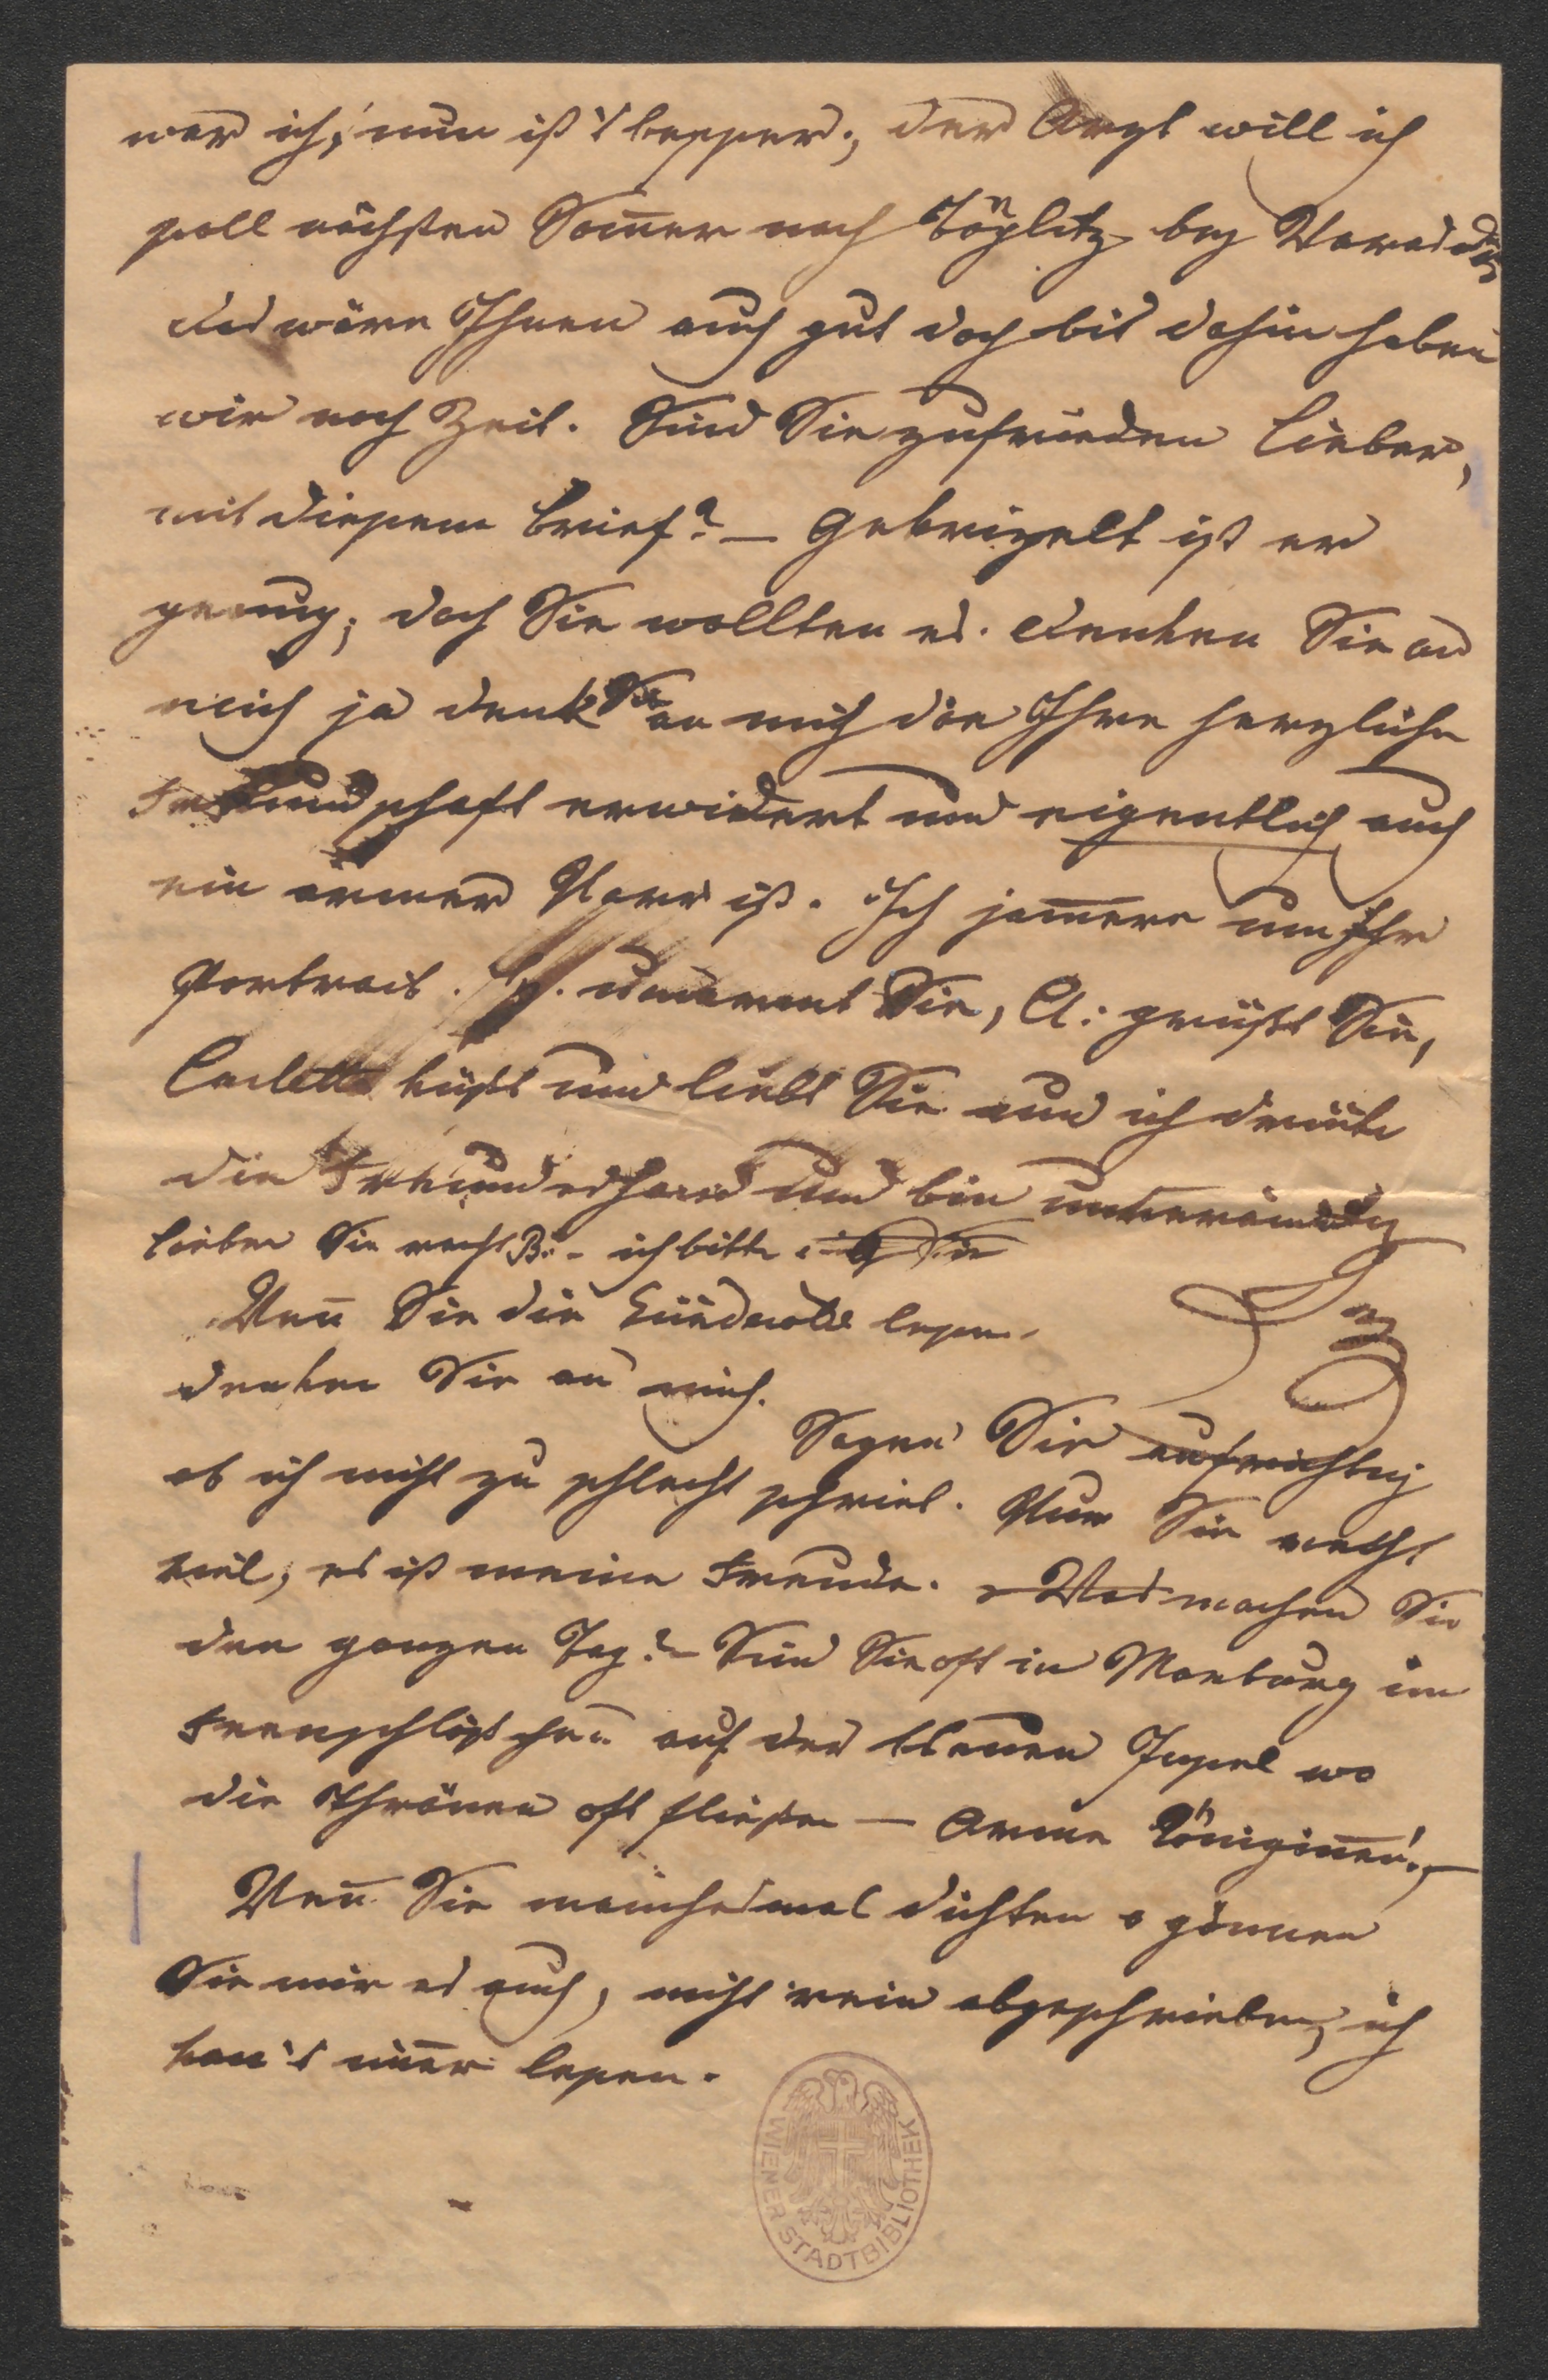 war ich, nun ist's besser; der Arzt will ich
soll nächsten Som̄er nach Töplitz bey Warasdin
das wäre Ihnen auch gut doch bis dahin haben
wir noch Zeit. Sind Sie zufrieden lieber,
mit diesem Brief? – Gekrizelt ist er
genug; doch Sie wollten es. Denken Sie an
mich ja denk Sie an mich die Ihre herzliche
Freundschaft erwiedert und eigentlich auch
ein armer Narr ist. Ich jam̄ere um Ihr
Portrait. umarmt Sie, A: grüßt Sie,
küßt und liebt Sie und ich drücke
die Freundeshand und bin unveränderlich
Lieben Sie recht B: – ich bitte Sie
Wen̄ Sie die lesen,
denken Sie an mich.
Sagen Sie aufrichtig
ob ich nicht zu schlecht schrieb. Nun Sie recht
viel, es ist meine Freude. Was machen Sie
den ganzen Tag? – Sind Sie oft in Marburg im
Feenschlößchen auf der kleinen Insel wo
die Thränen oft fließen – Arme Königin̄en! –
Wen̄ Sie manchesmal dichten o gönnen
Sie mir es auch, nicht rein abgeschrieben, ich
kan̄'s im̄er lesen.
WIENER STADTBIBLIOTHEK